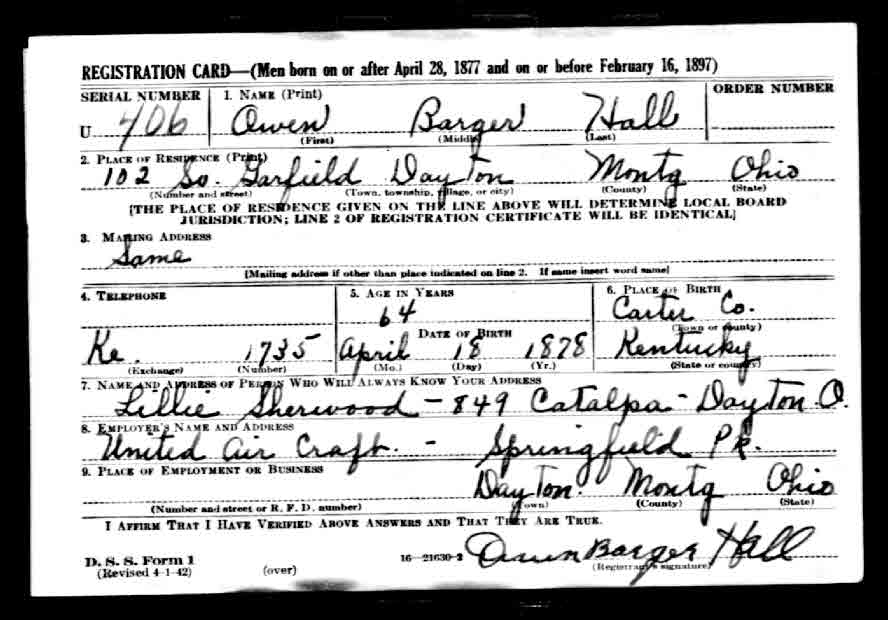 REGISTRATION CARD—(Men born on or after April 28, 1877 and on or before February 16, 1897)
SERIAL NUMBER 1. NAME (Print) ORDER NUMBER
U 406 Owen Barger Hall
(First) (Middle) (Last)
2. PLACE OF RESIDENCE (Print)
102 So. Garfield Dayton Montg Ohio
(Number and street) (Town, township, village, or city) (County) (State)
[THE PLACE OF RESIDENCE GIVEN ON THE LINE ABOVE WILL DETERMINE LOCAL BOARD
JURISDICTION; LINE 2 OF REGISTRATION CERTIFICATE WILL BE IDENTICAL]
3. MAILING ADDRESS
Same
[Mailing address if other than place indicated on line 2. If same insert word same]
4. TELEPHONE 5. AGE IN YEARS 6. PLACE OF BIRTH
64 Carter Co.
DATE OF BIRTH (Town or county)
Ke. 1735 April 18 1878 Kentucky
(Exchange) (Number) (Mo.) (Day) (Yr.) (State or country)
7. NAME AND ADDRESS OF PERSON WHO WILL ALWAYS KNOW YOUR ADDRESS
Lillie Sherwood - 849 Catalpa - Dayton O.
8. EMPLOYER'S NAME AND ADDRESS
United Air Craft. - Springfield Pk.
9. PLACE OF EMPLOYMENT OR BUSINESS
Dayton. Montg Ohio
(Number and street or R. F. D. number) (Town) (County) (State)
I AFFIRM THAT I HAVE VERIFIED ABOVE ANSWERS AND THAT THEY ARE TRUE.
D. S. S. Form 1 16—21630-2 Owen Barger Hall
(Revised 4-1-42) (over) (Registrant's signature)